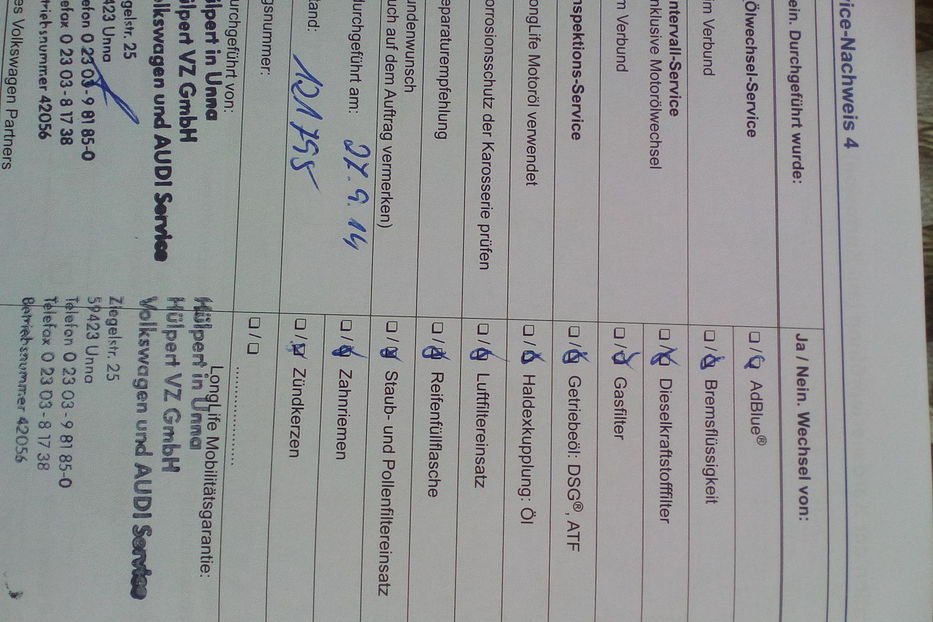 ice-Nachweis 4
ein. Durchgeführt wurde:
Ölwechsel-Service
im Verbund
ntervall-Service
nklusive Motorölwechsel
m Verbund
nspektions-Service
ongLife Motoröl verwendet
orrosionsschutz der Karosserie prüfen
eparaturempfehlung
undenwunsch
uch auf dem Auftrag vermerken)
durchgeführt am: 27.9.14
tand: 121795
gsnummer:
urchgeführt von:
ülpert in Unna
ülpert VZ GmbH
lkswagen und AUDI Service
egelstr. 25
423 Unna
efon 0 23 03-9 81 85-0
efax 0 23 03-8 17 38
triebsnummer 42056
es Volkswagen Partners
Ja / Nein. Wechsel von:
/ AdBlue®
/ Bremsflüssigkeit
/ Dieselkraftstofffilter
/ Gasfilter
/ Getriebeöl: DSG®, ATF
/ Haldexkupplung: Öl
/ Luftfiltereinsatz
/ Reifenfüllflasche
/ Staub- und Pollenfiltereinsatz
/ Zahnriemen
/ Zündkerzen
☐ / ☐ ..................
LongLife Mobilitätsgarantie:
Hülpert in Unna
Hülpert VZ GmbH
Volkswagen und AUDI Service
Ziegelstr. 25
59423 Unna
Telefon 0 23 03-9 81 85-0
Telefax 0 23 03-8 17 38
Betriebsnummer 42056